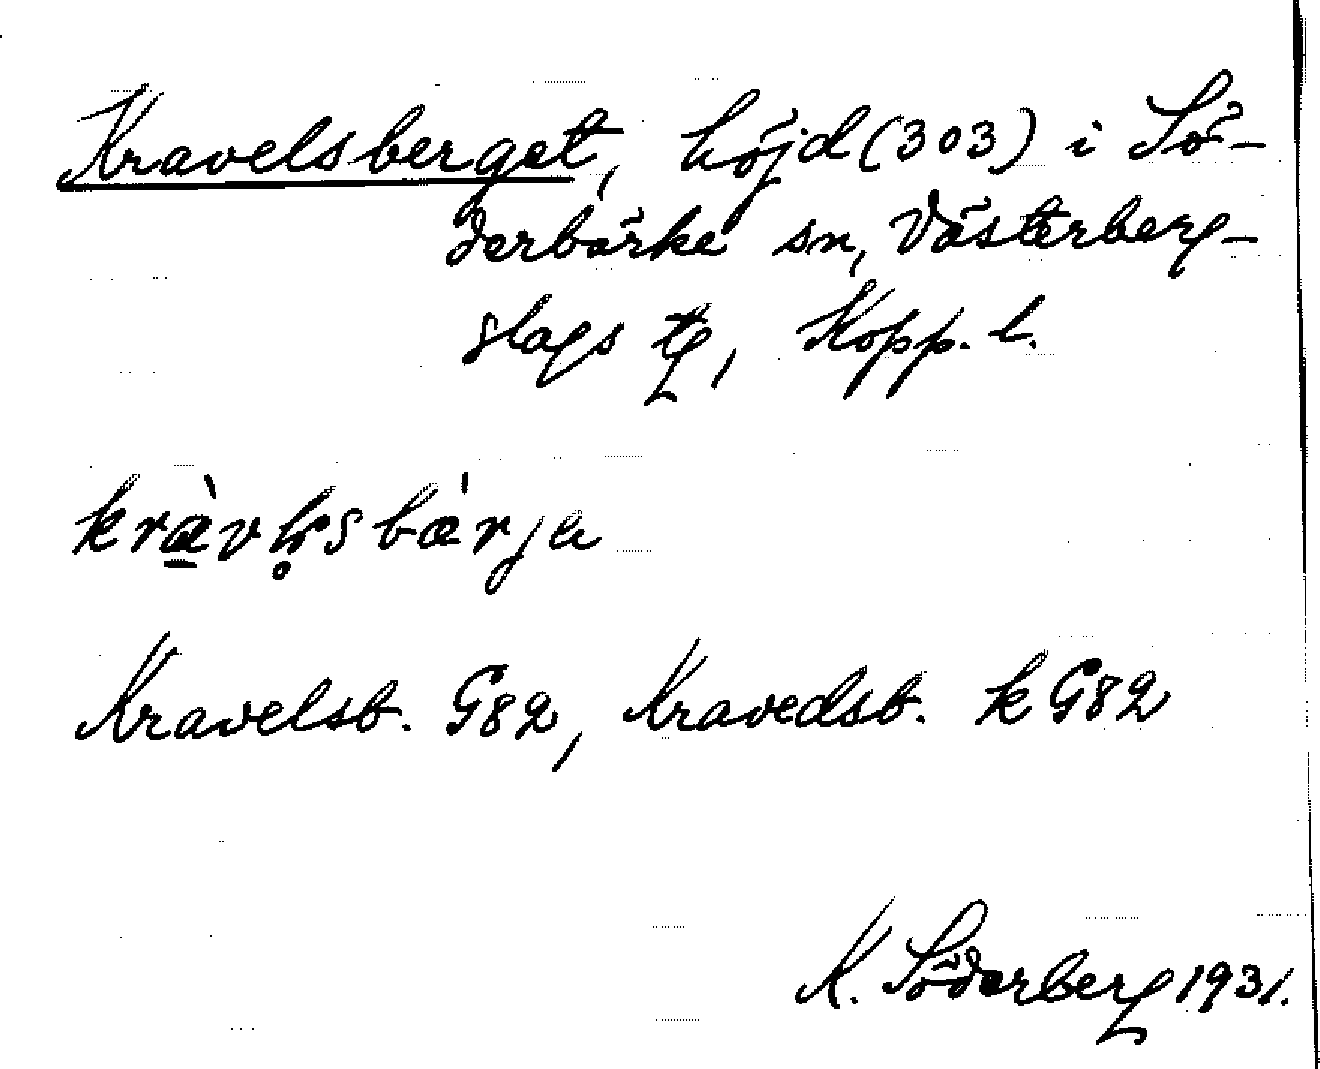 Kravelsberget, höjd (303) i Sö-
derbärke sn, Västerberg-
slags tg, Kopp. l.
Kravelsb. G82, Kravedsb. k G82
K. Söderberg 1931.